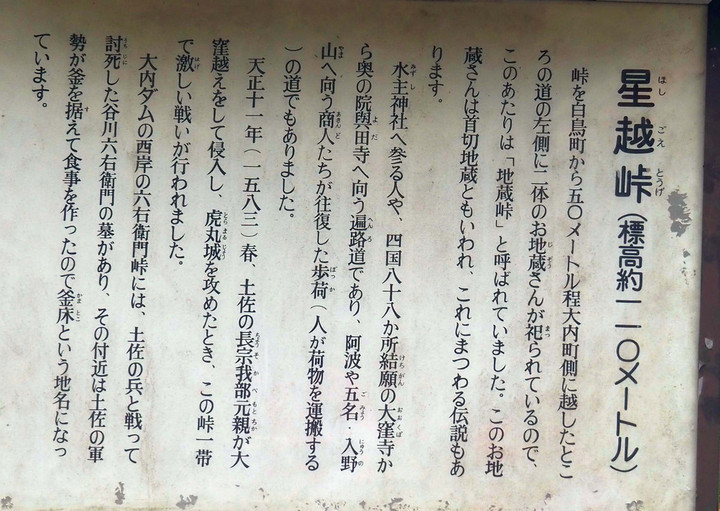 星越峠（標高約一一〇メートル）
峠を白鳥町から五〇メートル程大内町側に越したとこ
ろの道の左側に二体のお地蔵さんが祀られているので、
このあたりは「地蔵峠」と呼ばれていました。このお地
蔵さんは首切地蔵ともいわれ、これにまつわる伝説もあ
ります。
水主神社へ参る人や、四国八十八か所結願の大窪寺か
ら奥の院與田寺へ向う遍路道であり、阿波や五名・入野
山へ向う商人たちが往復した歩荷（人が荷物を運搬する
）の道でもありました。
天正十一年（一五八三）春、土佐の長宗我部元親が大
窪越えをして侵入し、虎丸城を攻めたとき、この峠一帯
で激しい戦いが行われました。
大内ダムの西岸の六右衛門峠には、土佐の兵と戦って
討死した谷川六右衛門の墓があり、その付近は土佐の軍
勢が釜を据えて食事を作ったので釜床という地名になっ
ています。